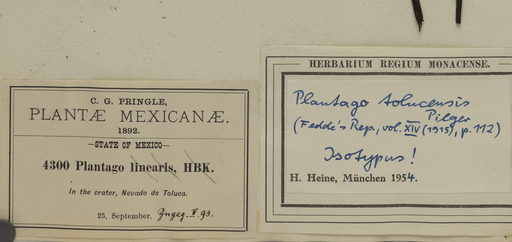 C. G. PRINGLE,
PLANTÆ MEXICANÆ.
1892.
STATE OF MEXICO
4300 Plantago linearis, HBK.
In the crater, Nevado de Toluca.
25, September. Ingeg. V. 93.
HERBARIUM REGIUM MONACENSE.
Plantago tolucensis
Pilger
(Fedde's Rep., vol. XIV (1915), p. 112)
Isotypus!
H. Heine, München 1954.